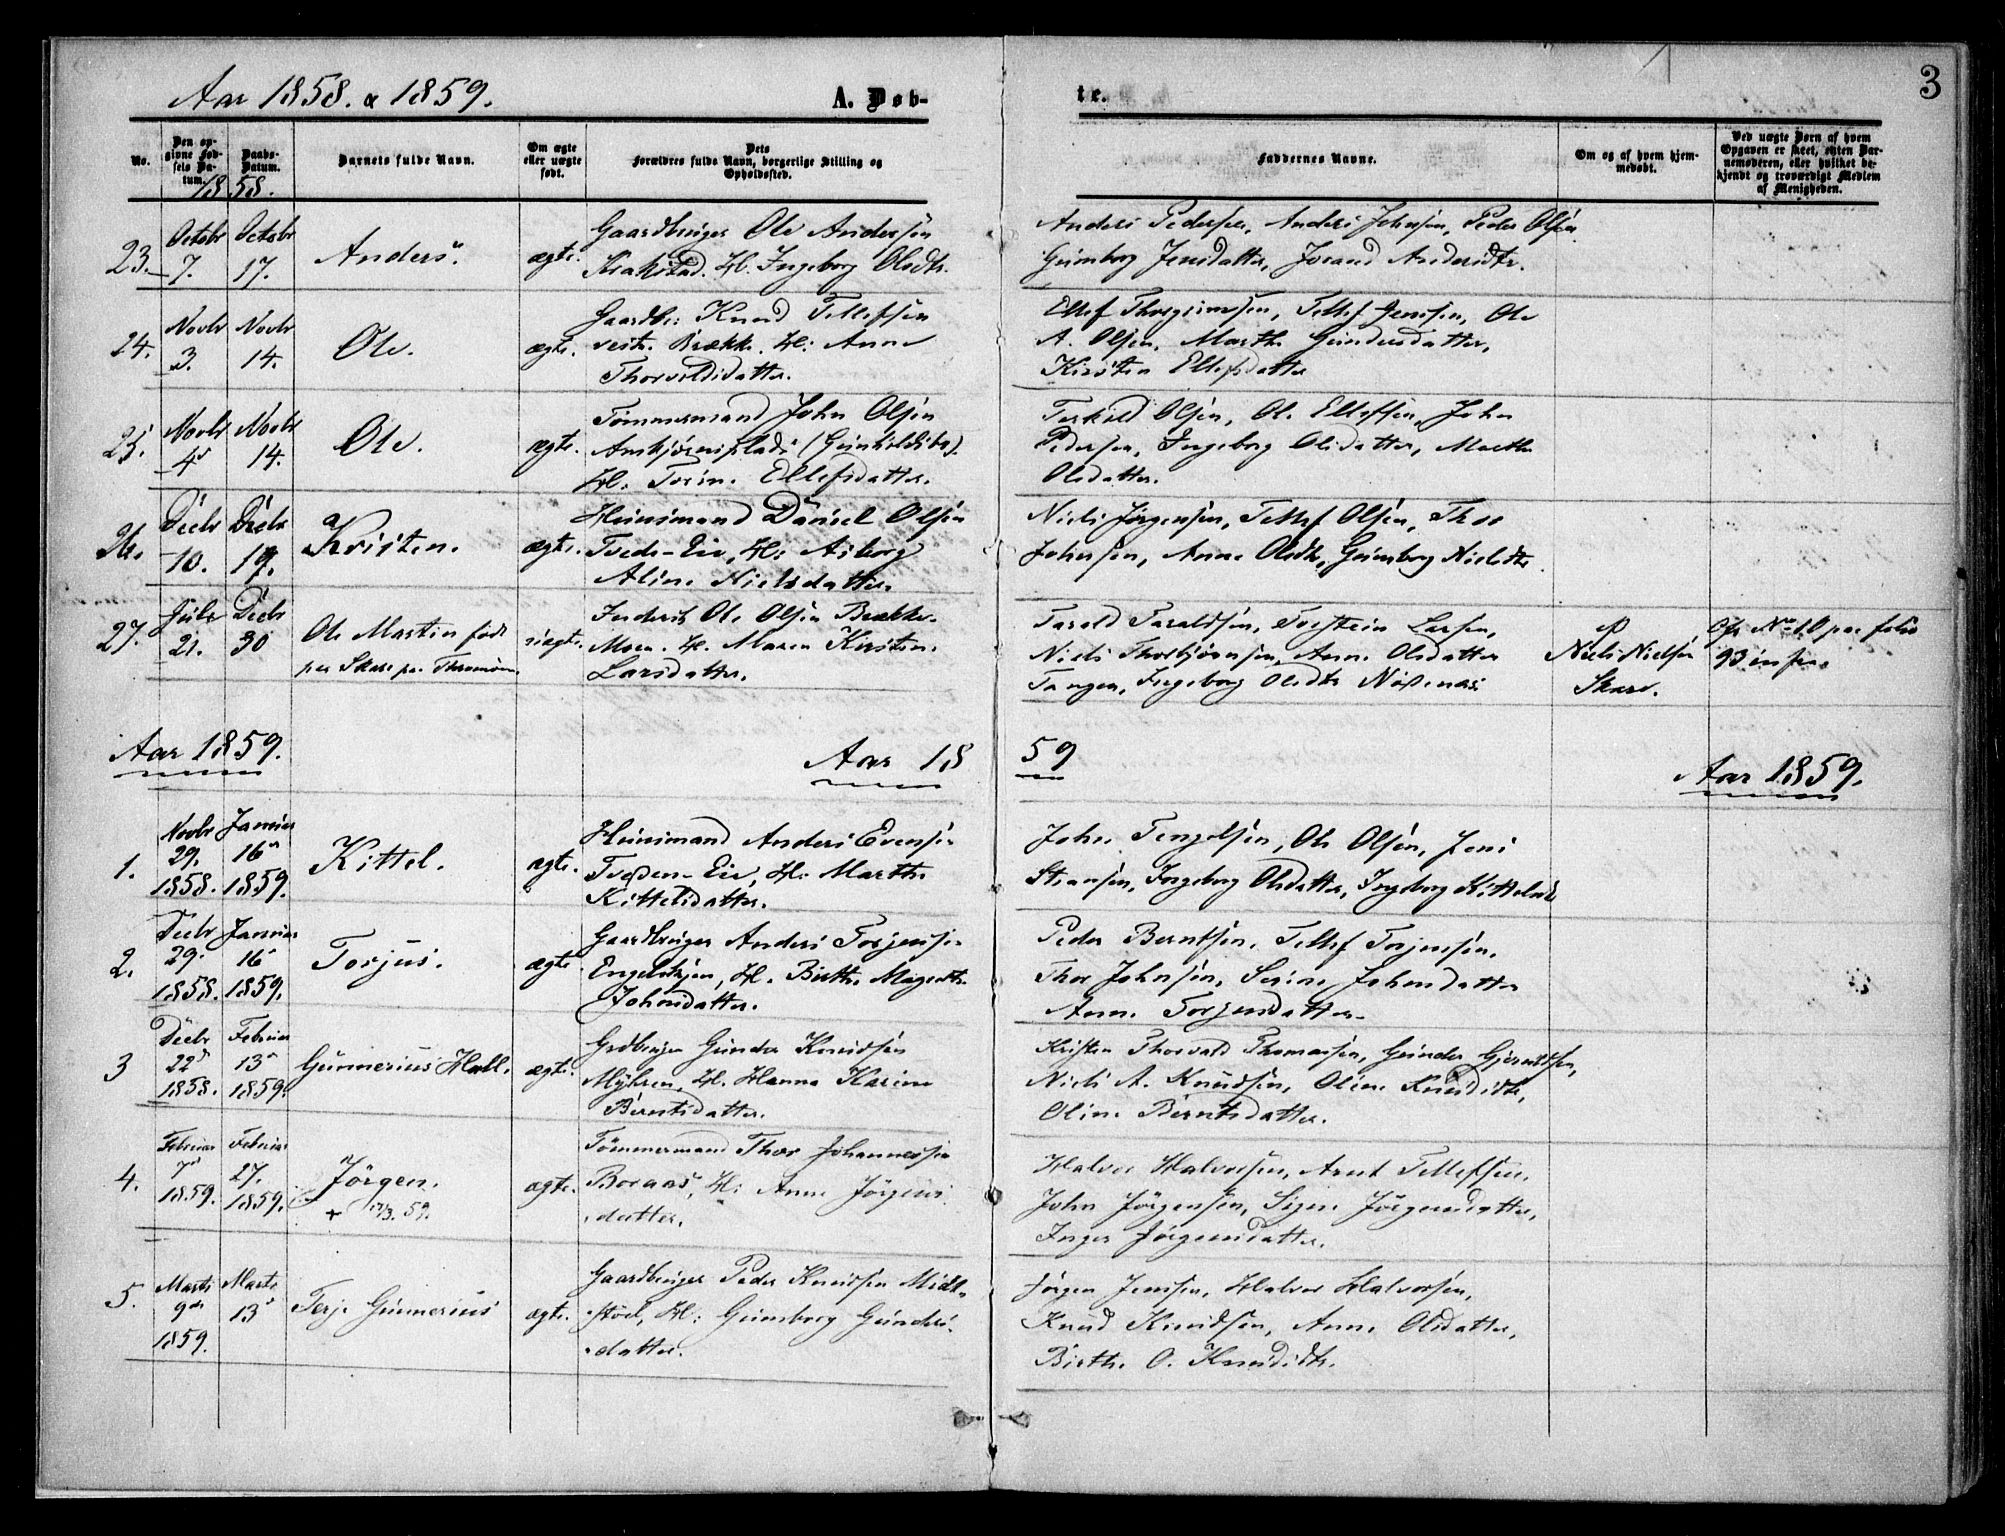 Aar 1858. & 1859.
A. Døb-
te.
3
No.
Den op-
givne Fød-
sels Da-
tum.
Daabs-
Datum.
1858.
Barnets fulde Navn.
Om ægte
eller uægte
født.
Dets
Forældres fulde Navn, borgerlige Stilling og
Opholdssted.
Faddernes Navne.
Om og af hvem hjem-
medøbt.
Ved uægte Børn af hvem
Opgaven er skeet, enten Bar-
nemoderen, eller hvilket be-
kjendt og troværdigt Medlem
af Menigheden.
23.
Octobr
7.
Octobr
17.
Anders.
ægte.
Gaardbruger Ole Andersen
H. Ingeborg Olsdtr.
Anders Pedersen, Anders Johnsen, Peder Olsen
Gunborg Jensdatter, Joraand Andersdtr.
24.
Novbr
3.
Novbr
14.
Ole.
ægte.
Gaardbr. Knud Tellefsen
vestre Brække. H: Anne
Thorvildsdatter.
Ellef Thorgrimsen, Tellef Jensen, Ole
A. Olsen, Marthe Gundersdatter,
Kirsten Ellefsdatter
25.
Novbr
4de
Novbr
14.
Ole.
ægte.
Tømmermand John Olsen
H. Torine Ellefsdatter.
Terkild Olsen, Ole Ellefsen, John
Pedersen, Ingeborg Olsdatter, Marthe
Olsdatter.
26.
Decbr
10.
Decbr
19.
Kristen.
ægte.
Huusmand Daniel Olsen
Tvede-Eie, H: Asborg
Aline Nielsdatter.
Niels Jørgensen, Tellef Olsen, Thor
Johnsen, Anne Olsdtr, Gunborg Nielsdtr.
27.
Juli
21.
Decbr
30
Ole Martin født
paa Skare paa Thromøen
uægte.
Inderst Ole Olsen Brække-
Moen. H. Maren Kirstine
Larsdatter.
Tarald Taraldsen, Torstein Larsen,
Niels Thorbjørnsen, Anne Olsdatter
Tangen, Ingeborg Olsdtr
Niels Nielsen
Skare.
Cfr No 10 paa folio
93
Aar 1859.
Aar 18
59
Aar 1859.
1.
Novbr
29.
1858.
Januar
16de
1859.
Kittel.
ægte.
Huusmand Anders Evensen
Tveden-Eie, H: Marthe
Kittelsdatter.
John Tengelsen, Ole Olsen, Jens
Ingeborg Olsdatter, Ingeborg Kittelsdtr
2.
Decbr
29.
1858.
Januar
16
1859.
Torjus.
ægte.
Gaardbruger Anders Torjussen
H. Birthe Magrethe
Johnsdatter.
Peder Berntsen, Tellef Torjussen,
Thor Johnsen, Serine Johnsdatter
Anne Torjusdatter.
3
Decbr
22de
1858.
Februar
13de
1859.
Gunnerius Hall.
ægte.
Grdbruger Gunder Knudsen
Myhren, H. Hanna Karine
Berntsdatter.
Kristen Thorvald Thomassen, Gunder Gjermundsen,
Niels A. Knudsen, Oline Knudsdtr,
Oline Berntsdatter.
4.
Februar
7de
1859.
Februar
27.
1859.
Jørgen.
+ 17/3. 59.
ægte.
Tømmermand Thor Johannessen
Boraas, H: Anne Jørgens
datter.
Halvor Halvorsen, Arnt Tellefsen,
John Jørgensen, Signe Jørgensdatter,
Inger Jørgensdatter.
5.
Marts
9de
1859.
Marts
13de
Terje Gunnerius
ægte.
Gaardbruger Peder Knudsen Midt-
stød, H: Gunborg Gunders-
datter.
Jørgen Jensen, Halvor Halvorsen,
Knud Knudsen, Anne Olsdatter,
Birthe O. Knudsdtr.